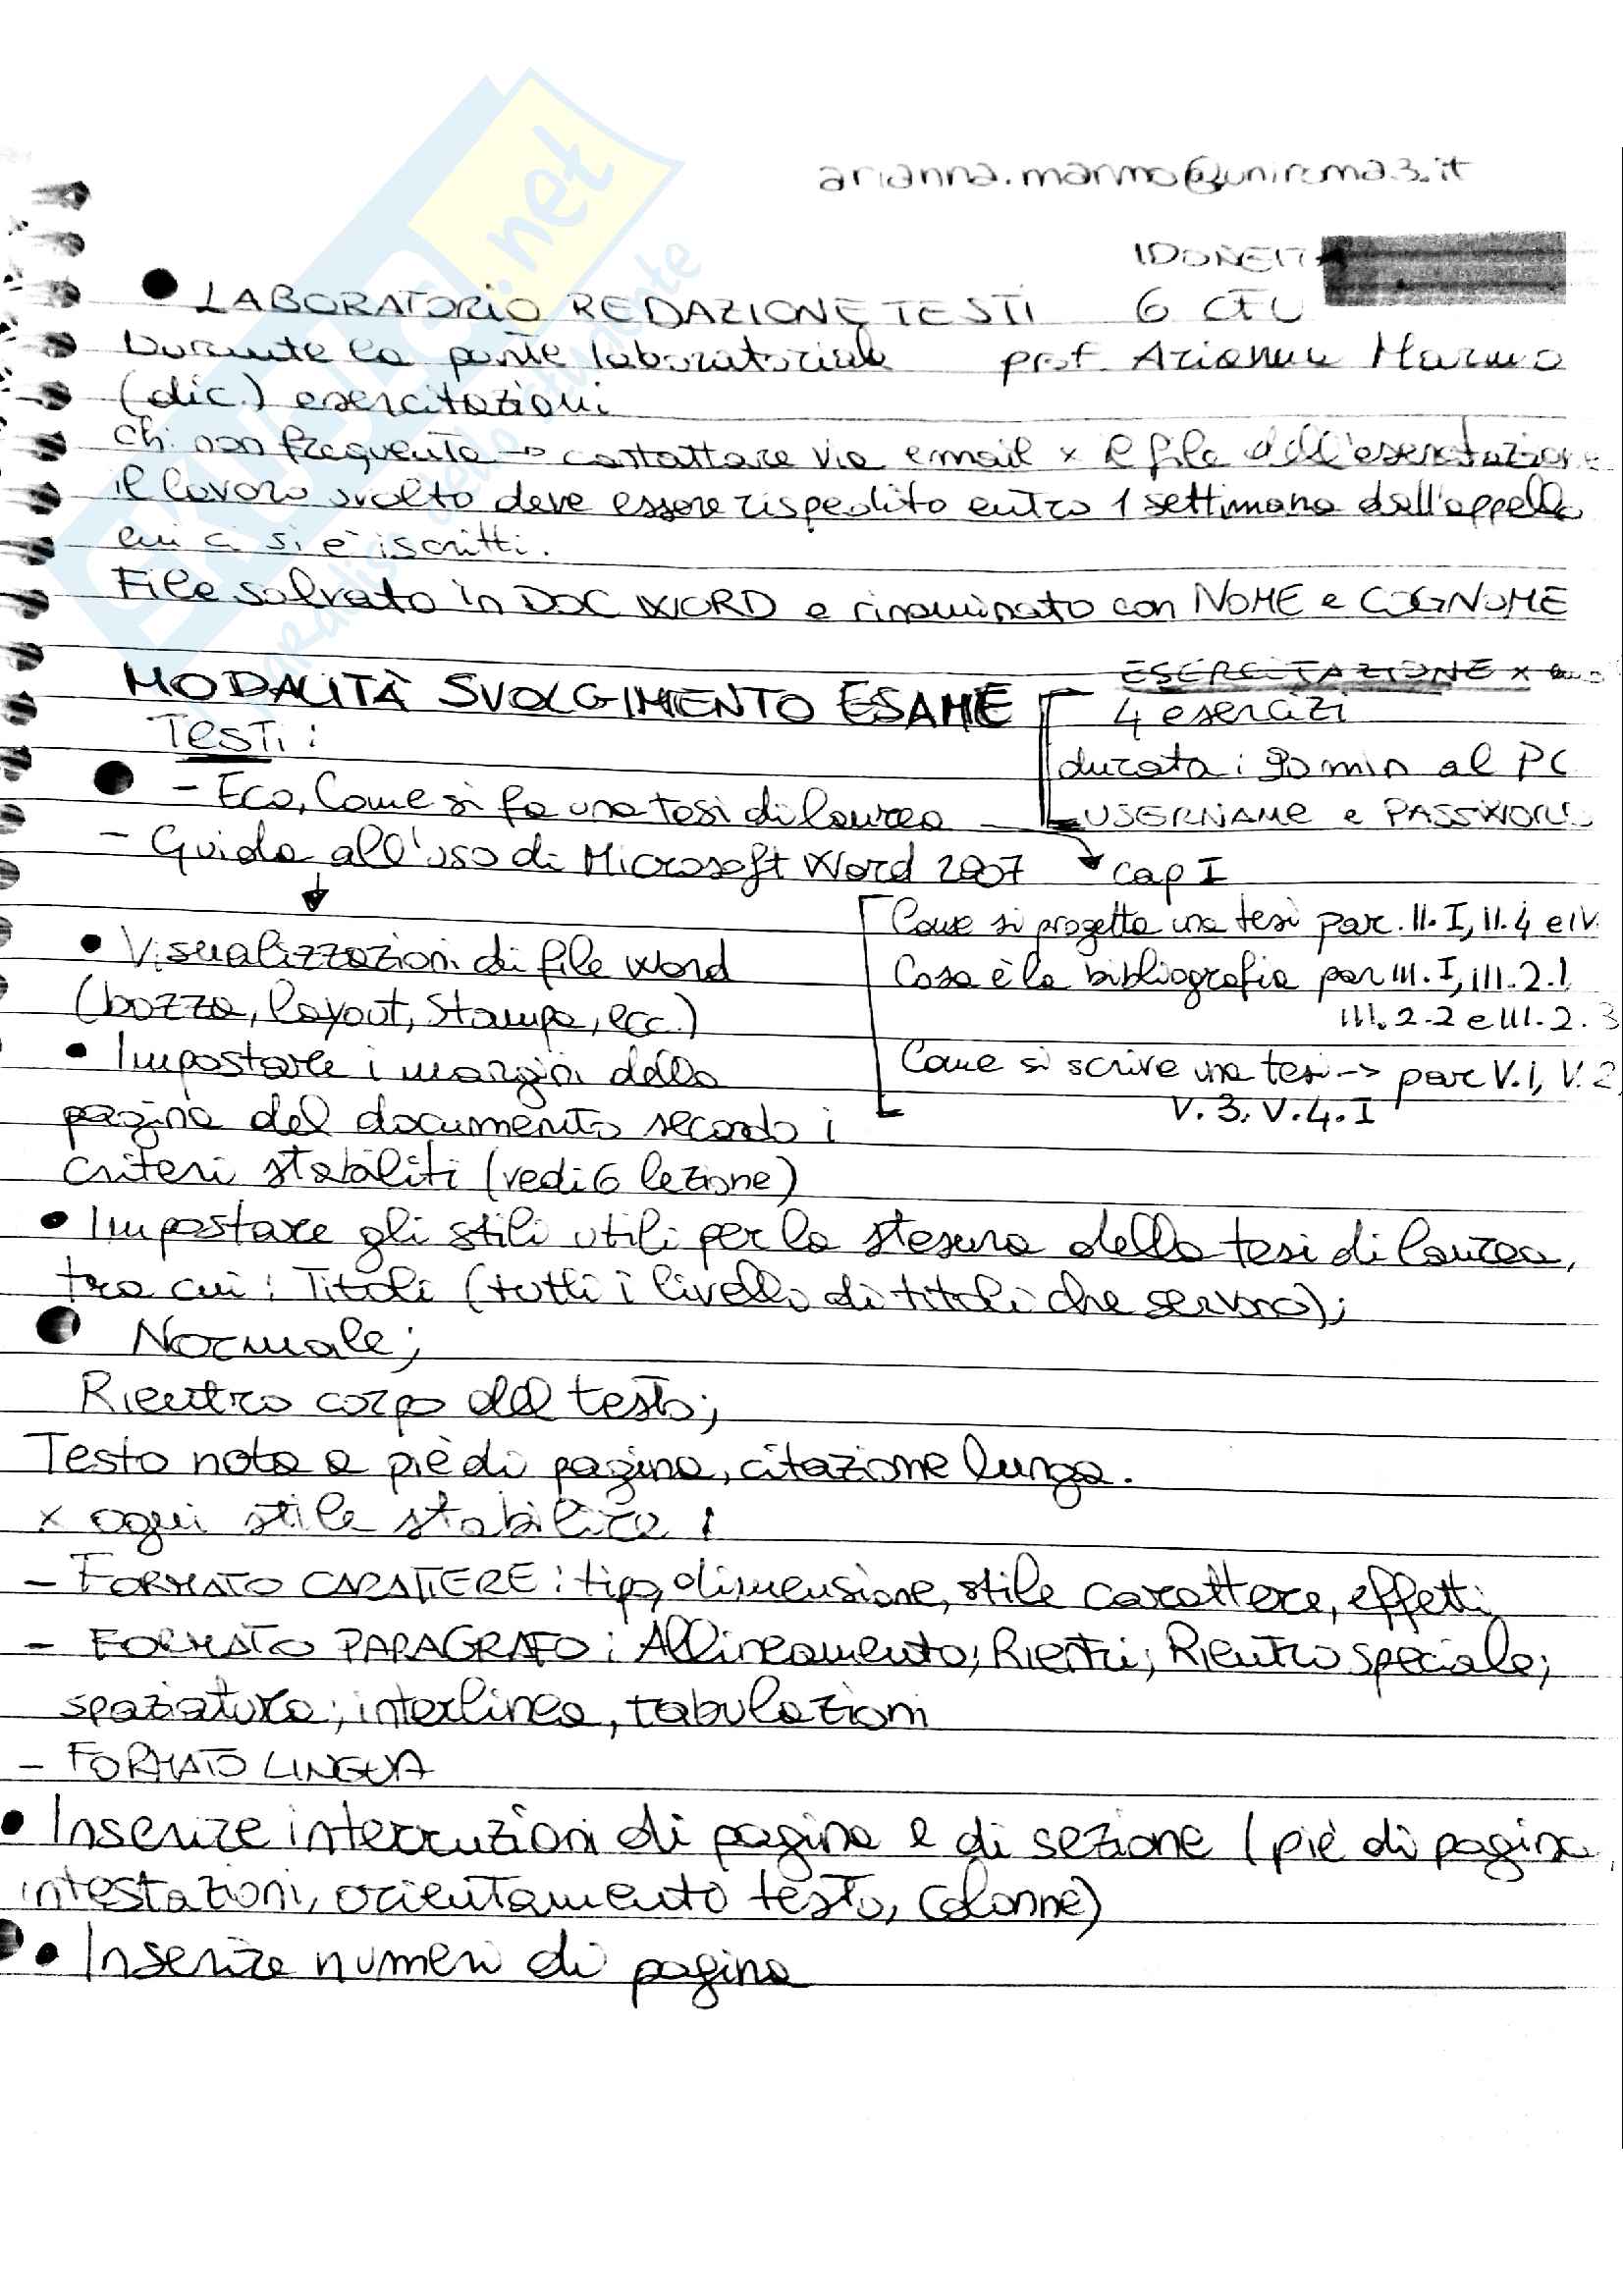 arianna.marmo@uniroma3.it
IDONEITÀ
LABORATORIO REDAZIONE TESTI 6 CFU
Durante la parte laboratoriale prof. Arianna Marmo
(dic.) esercitazioni
Chi non frequenta → contattare via email x il file dell'esercitazione
il lavoro svolto deve essere rispedito entro 1 settimana dall'appello
cui ci si è iscritti.
File salvato in DOC WORD e rinominato con NOME e COGNOME
ESERCITAZIONE x
MODALITÀ SVOLGIMENTO ESAME
4 esercizi
Testi:
durata: 90 min al PC
- Eco, Come si fa una tesi di laurea
USERNAME e PASSWORD
- Guida all'uso di Microsoft Word 2007
cap I
Come si progetta una tesi par. II.I, II.4 e IV.
• Visualizzazioni di file word
Cosa è la bibliografia par III.I, III.2.1
(bozza, layout, stampa, ecc.)
III.2.2 e III.2.3
• Impostare i margini della
Come si scrive una tesi → par V.1, V.2,
pagina del documento secondo i
V.3, V.4.I
criteri stabiliti (vedi 6 lezione)
• Impostare gli stili utili per la stesura della tesi di laurea,
tra cui: Titoli (tutti i livelli di titoli che servono);
Normale;
Rientro corpo del testo;
Testo nota a piè di pagina, citazione lunga.
x ogni stile stabilire:
- FORMATO CARATTERE: tipo, dimensione, stile carattere, effetti
- FORMATO PARAGRAFO: Allineamento; Rientri; Rientro speciale;
spaziatura; interlinea, tabulazioni
- FORMATO LINGUA
• Inserire interruzioni di pagina e di sezione (piè di pagina,
intestazioni, orientamento testo, colonne)
• Inserire numeri di pagina
SKUOLA.net
paradiso dello studente